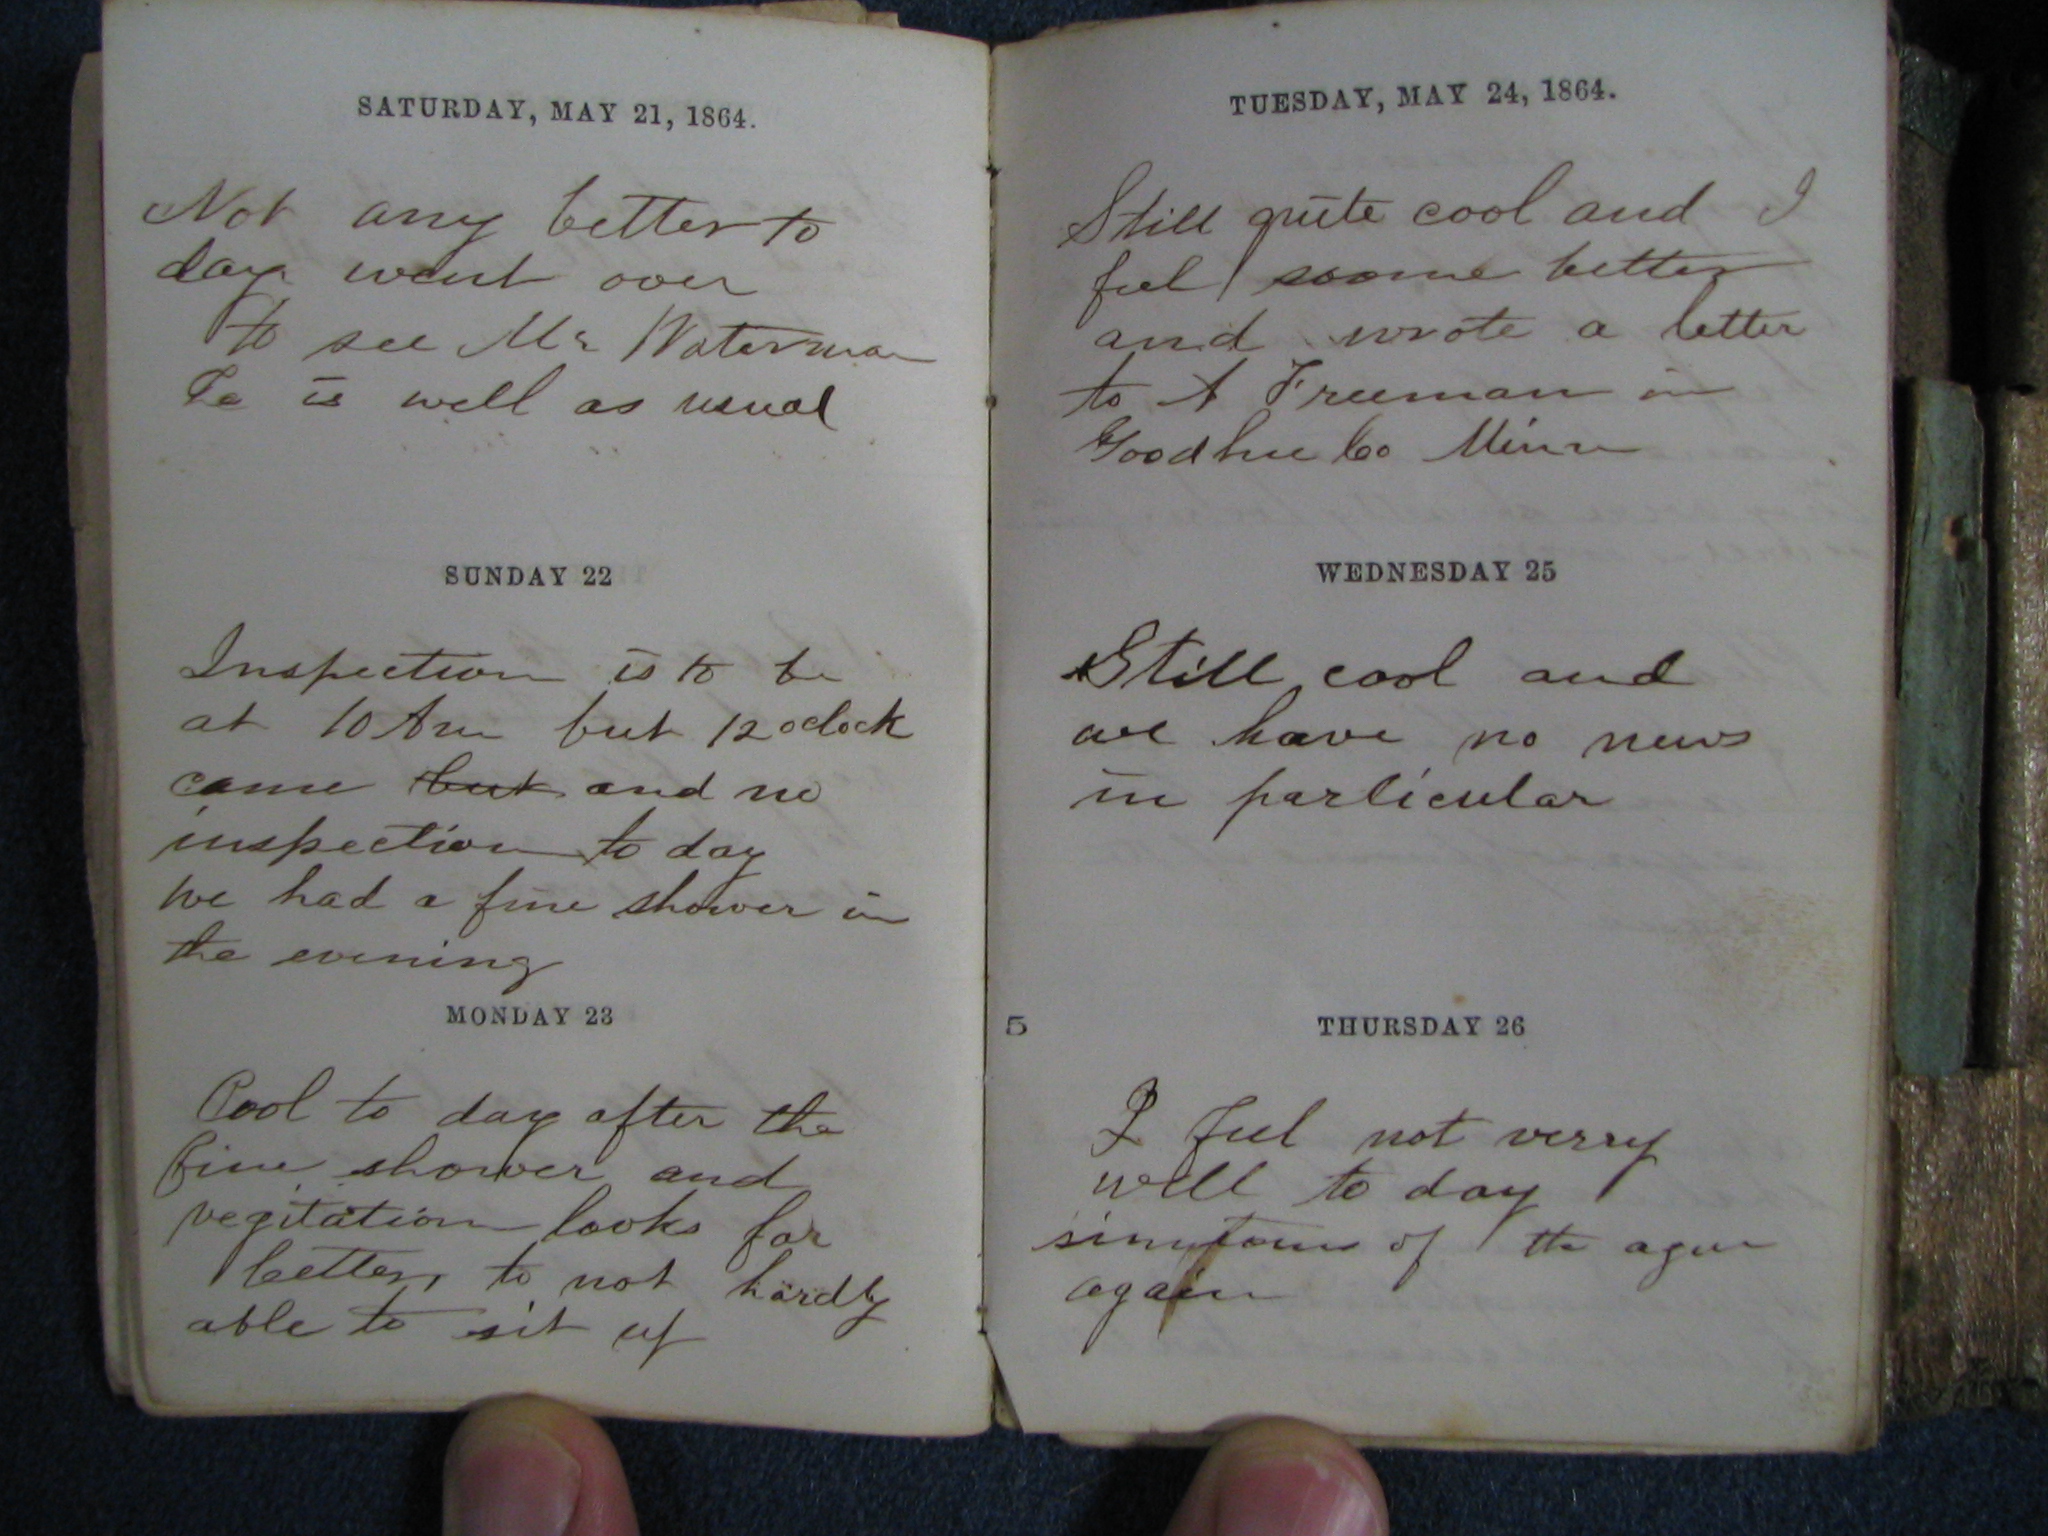 SATURDAY, MAY 21, 1864.
Not any better to
day went over
to see Mr Waterman
He is well as usual
SUNDAY 22
Inspection is to be
at 10 Am but 12 oclock
came but and no
inspection to day
we had a fine shower in
the evening
MONDAY 23
Cool to day after the
fine shower and
vegitation looks far
better, to not hardly
able to sit up
TUESDAY, MAY 24, 1864.
Still quite cool and I
feel some better
and wrote a letter
to A Freeman in
Goodhue Co Minn
WEDNESDAY 25
Still cool and
we have no news
in particular
5
THURSDAY 26
I feel not verry
well to day
simtoms of the ague
again